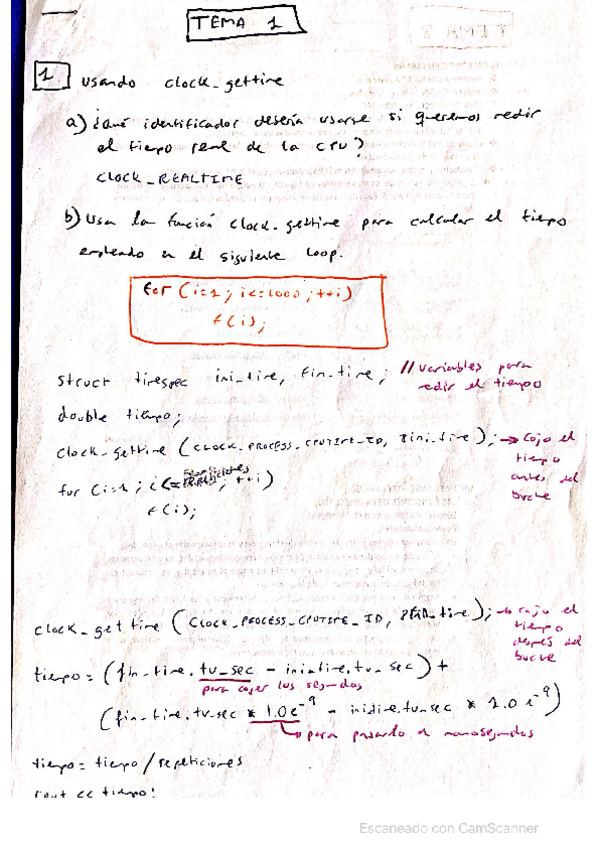 TEMA 1
1 Usando clock_gettime
a) ¿Qué identificador debería usarse si queremos medir
el tiempo real de la CPU?
CLOCK_REALTIME
b) Usa la función clock_gettime para calcular el tiempo
empleado en el siguiente loop.
for (i=1; i<=1000; ++i)
f(i);
struct timespec ini_time, fin_time; // variables para
medir el tiempo
double tiempo;
clock_gettime (CLOCK_PROCESS_CPUTIME_ID, &ini_time); → Cojo el
tiempo
antes del
bucle
for (i=1; i<= ; ++i)
f(i);
clock_gettime (CLOCK_PROCESS_CPUTIME_ID, &fin_time); → cojo el
tiempo
después del
bucle
tiempo = (fin_time.tv_sec - ini_time.tv_sec) +
para coger los segundos
(fin_time.tv_sec * 1.0e^-9 - ini_time.tv_sec * 1.0e^-9)
↳ para pasarlo a nanosegundos
tiempo = tiempo / repeticiones
cout << tiempo;
Escaneado con CamScanner